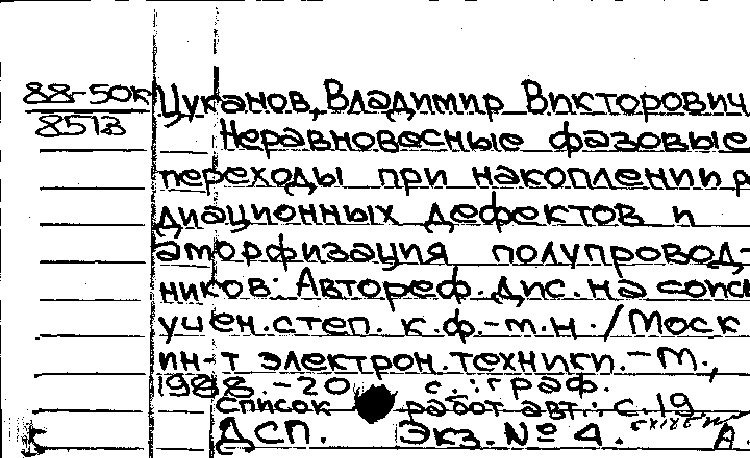 88-50к Цуканов, Владимир Викторович
8513 Неравновесные фазовые
переходы при накоплении р
диационных дефектов и
аморфизация полупровод-
ников: Автореф. дис. на соиск
учен. степ. к.ф.-м.н. / Моск
ин-т электрон. техники. - М.,
1988. - 20 с. : граф.
Список работ авт.: с. 19
ДСП. Экз. № 4. А.